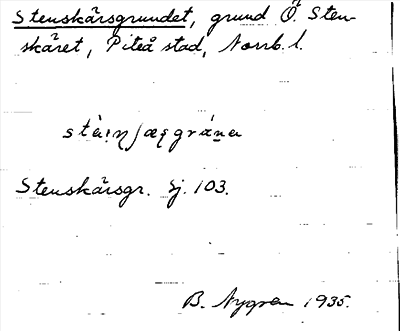 Stenskärsgrundet, grund Ö. Sten-
skäret, Piteå stad, Norrb. l.
Stenskärsgr. Sj. 103.
B. Nygren 1935.